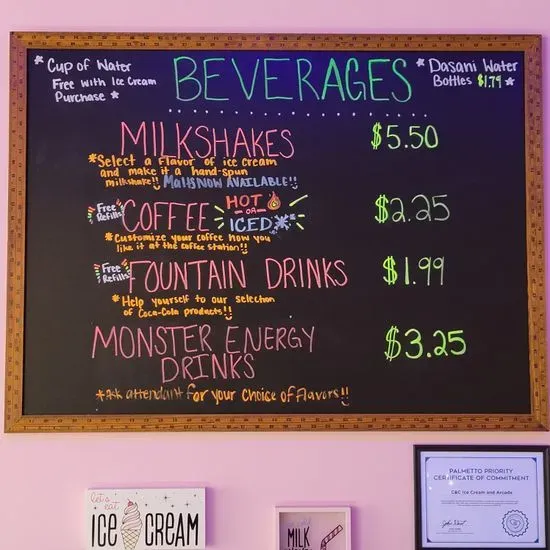 *Cup of Water
Free with Ice Cream
Purchase *
BEVERAGES
*Dasani Water
Bottles $1.79 *
MILKSHAKES $5.50
*Select a flavor of ice cream
and make it a hand-spun
milkshake!! Malts NOW AVAILABLE!!
Free
Refills
COFFEE HOT
OR
ICED
$2.25
*Customize your coffee how you
like it at the coffee station!!
Free
Refills
FOUNTAIN DRINKS $1.99
*Help yourself to our selection
of Coca-Cola products!!
MONSTER ENERGY
DRINKS
$3.25
*Ask attendant for your choice of flavors!!
let's
eat
ICE CREAM
MILK
PALMETTO PRIORITY
CERTIFICATE OF COMMITMENT
C&C Ice Cream and Arcade